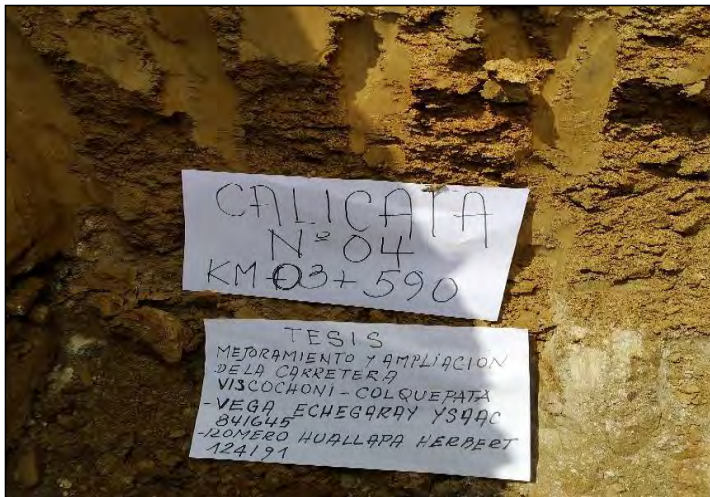 CALICATA
Nº 04
KM-03+590
TESIS
MEJORAMIENTO Y AMPLIACION
DE LA CARRETERA
VISCOCHONI - COLQUEPATA
-VEGA ECHEGARAY YSAAC
841645
-ROMERO HUALLAPA HERBERT
124191